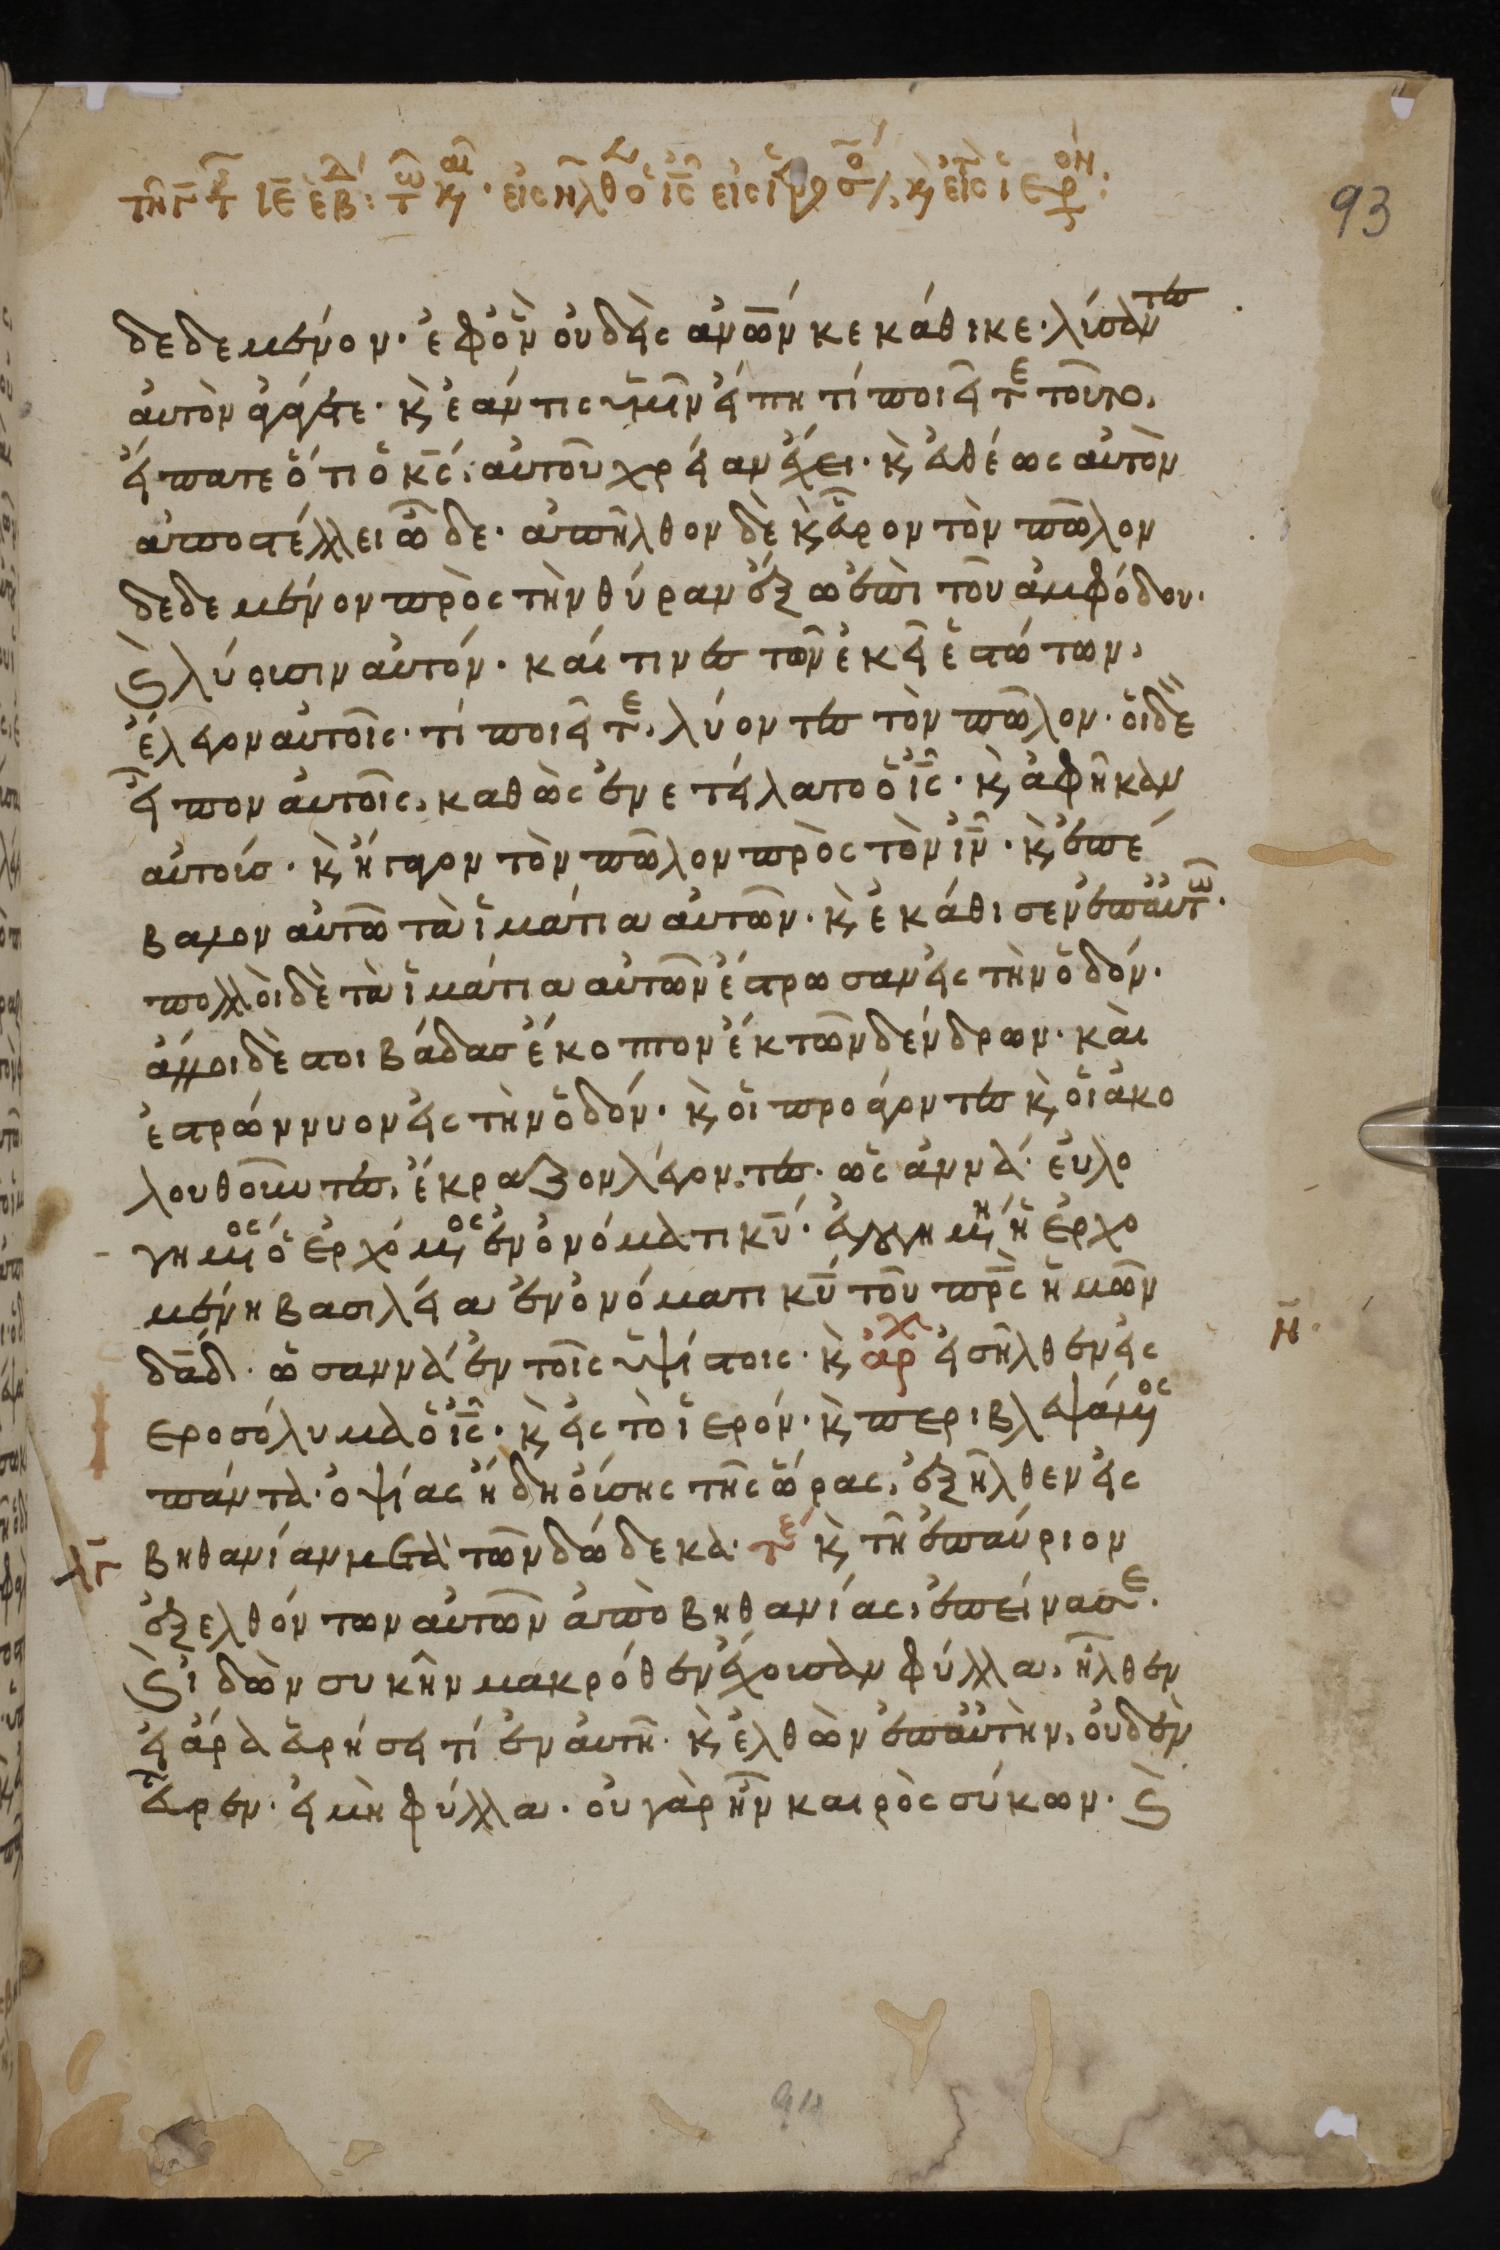 93
δεδεμένον· ἐφ ὃν οὐδεὶς ἀνων κεκάθικε· λύσαντες
αὐτὸν ἀγάγετε· κ ἐάν τις ὑμῖν είπη τί ποιεῖτε τοῦτο,
είπατε ὅτι ὁ κς αὐτοῦ χρείαν έχει· κ εὐθέως αὐτὸν
ἀποστέλλει ὧδε· ἀπῆλθον δὲ κ εὗρον τὸν πῶλον
δεδεμένον πρὸς τὴν θύραν έξω ἐπὶ τοῦ ἀμφόδου·
κ λύουσιν αὐτόν· καί τινες τῶν ἐκεῖ ἑστώτων,
έλεγον αὐτοῖς· τί ποιεῖτε, λύοντες τὸν πῶλον· οἱ δὲ
εἶπον αὐτοῖς, καθὼς ἐνετείλατο ὁ ις· κ ἀφῆκαν
αὐτούς· κ ήγαγον τὸν πῶλον πρὸς τὸν ιν· κ ἐπέ
βαλον αὐτῶ τὰ ἱμάτια αὐτῶν· κ ἐκάθισεν ἐπ αὐτω·
πολλοὶ δὲ τὰ ἱμάτια αὐτῶν έστρωσαν εἰς τὴν ὁδόν·
άλλοι δὲ στοιβάδας έκοπτον ἐκ τῶν δένδρων· καὶ
ἐστρώννυον εἰς τὴν ὁδόν· κ οἱ προάγοντες κ οἱ ἀκο
λουθοῦντες, έκραζον λέγοντες· ὡς ἀννά· εὐλο
γημος ὁ ἐρχόμος ἐν ὀνόματι κυ· εὐλογημη ἡ ἐρχο
μένη βασιλεία ἐν ὀνόματι κυ τοῦ πρς ἡμῶν
δαδ· ὡσαννά ἐν τοῖς ὑψίστοις· κ αρχ εἰσῆλθεν εἰς
η
εροσόλυμα ὁ ις· κ εἰς τὸ ἱερόν· κ περιβλεψάμος
πάντα· ὀψίας ήδη ούσης τῆς ὥρας, ἐξῆλθεν εἰς
λγ βηθανίαν μετὰ τῶν δώδεκα· τε κ τῆ ἐπαύριον
ἐξελθόντων αὐτῶν ἀπὸ βηθανίας, ἐπείνασε·
κ ἰδὼν συκῆν μακρόθεν έχουσαν φύλλα, ἦλθεν
εἰ άρα εὑρήσει τί ἐν αὐτῆ· κ ἐλθὼν ἐπ αὐτὴν, οὐδὲν
εὗρεν· εἰ μὴ φύλλα· οὐ γὰρ ἦν καιρὸς σύκων· κ